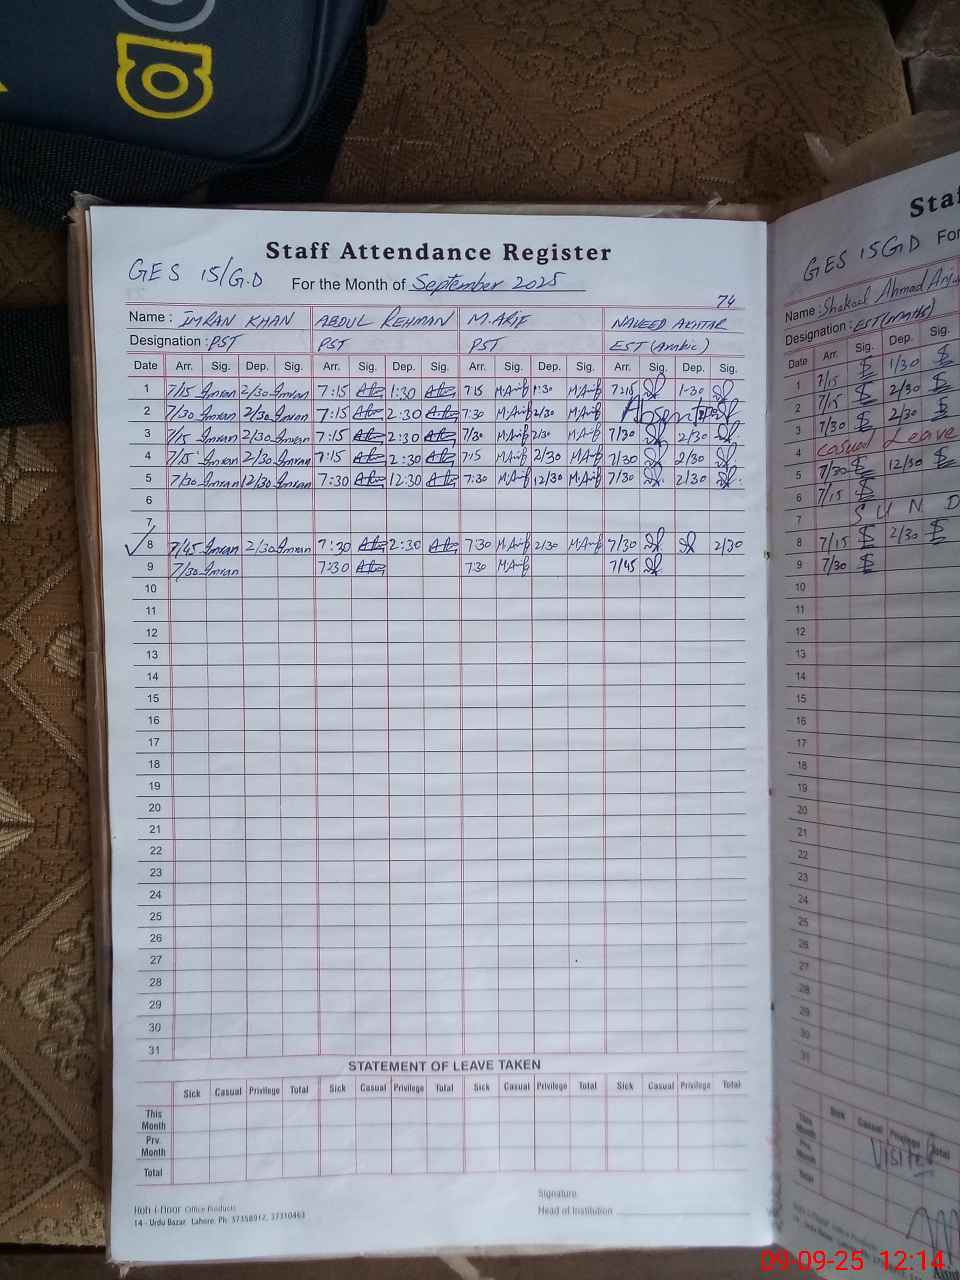 a
Staff Attendance Register
GES 15/G.D
For the Month of September 2025
74
Name : IMRAN KHAN ABDUL REHMAN M.ARIF NAVEED AKHTAR
Designation : PST PST PST EST (Arabic)
Date Arr. Sig. Dep. Sig. Arr. Sig. Dep. Sig. Arr. Sig. Dep. Sig. Arr. Sig. Dep. Sig.
1 7/15 Imran 2/30 Imran 7:15 1:30 7:15 M.Arif 1:30 M.Arif 7:15 1:30
2 7/30 Imran 2/30 Imran 7:15 2:30 7:30 M.Arif 2/30 M.Arif Absent
3 7/15 Imran 2/30 Imran 7:15 2:30 7/30 M.Arif 2/30 M.Arif 7/30 2/30
4 7/15 Imran 2/30 Imran 7:15 2:30 7:15 M.Arif 2/30 M.Arif 7/30 2/30
5 7/30 Imran 12/30 Imran 7:30 12:30 7:30 M.Arif 12/30 M.Arif 7/30 2/30
6
7
8 7/45 Imran 2/30 Imran 7:30 2:30 7:30 M.Arif 2/30 M.Arif 7/30 2/30
9 7/30 Imran 7:30 7:30 M.Arif 7/45
10
11
12
13
14
15
16
17
18
19
20
21
22
23
24
25
26
27
28
29
30
31
STATEMENT OF LEAVE TAKEN
Sick Casual Privilege Total Sick Casual Privilege Total Sick Casual Privilege Total Sick Casual Privilege Total
This Month
Prv. Month
Total
Signature
Head of Institution
Roh-i-Noor Office Products
14 - Urdu Bazar, Lahore. Ph: 37358912, 37310463
GES 15 G.D
Name : Shakeel Ahmad
Designation : EST (Maths)
Date Arr. Sig. Dep. Sig.
1 7/15 1/30
2 7/15 2/30
3 7/30 2/30
4 Casual Leave
5 7/30 12/30
6 7/15
7 S U N D
8 7/15 2/30
9 7/30
10
11
12
13
14
15
16
17
18
19
20
21
22
23
24
25
26
27
28
29
30
31
Sick Casual Privilege Total
This Month
Prv. Month
Total
Visited
09-09-25 12:14